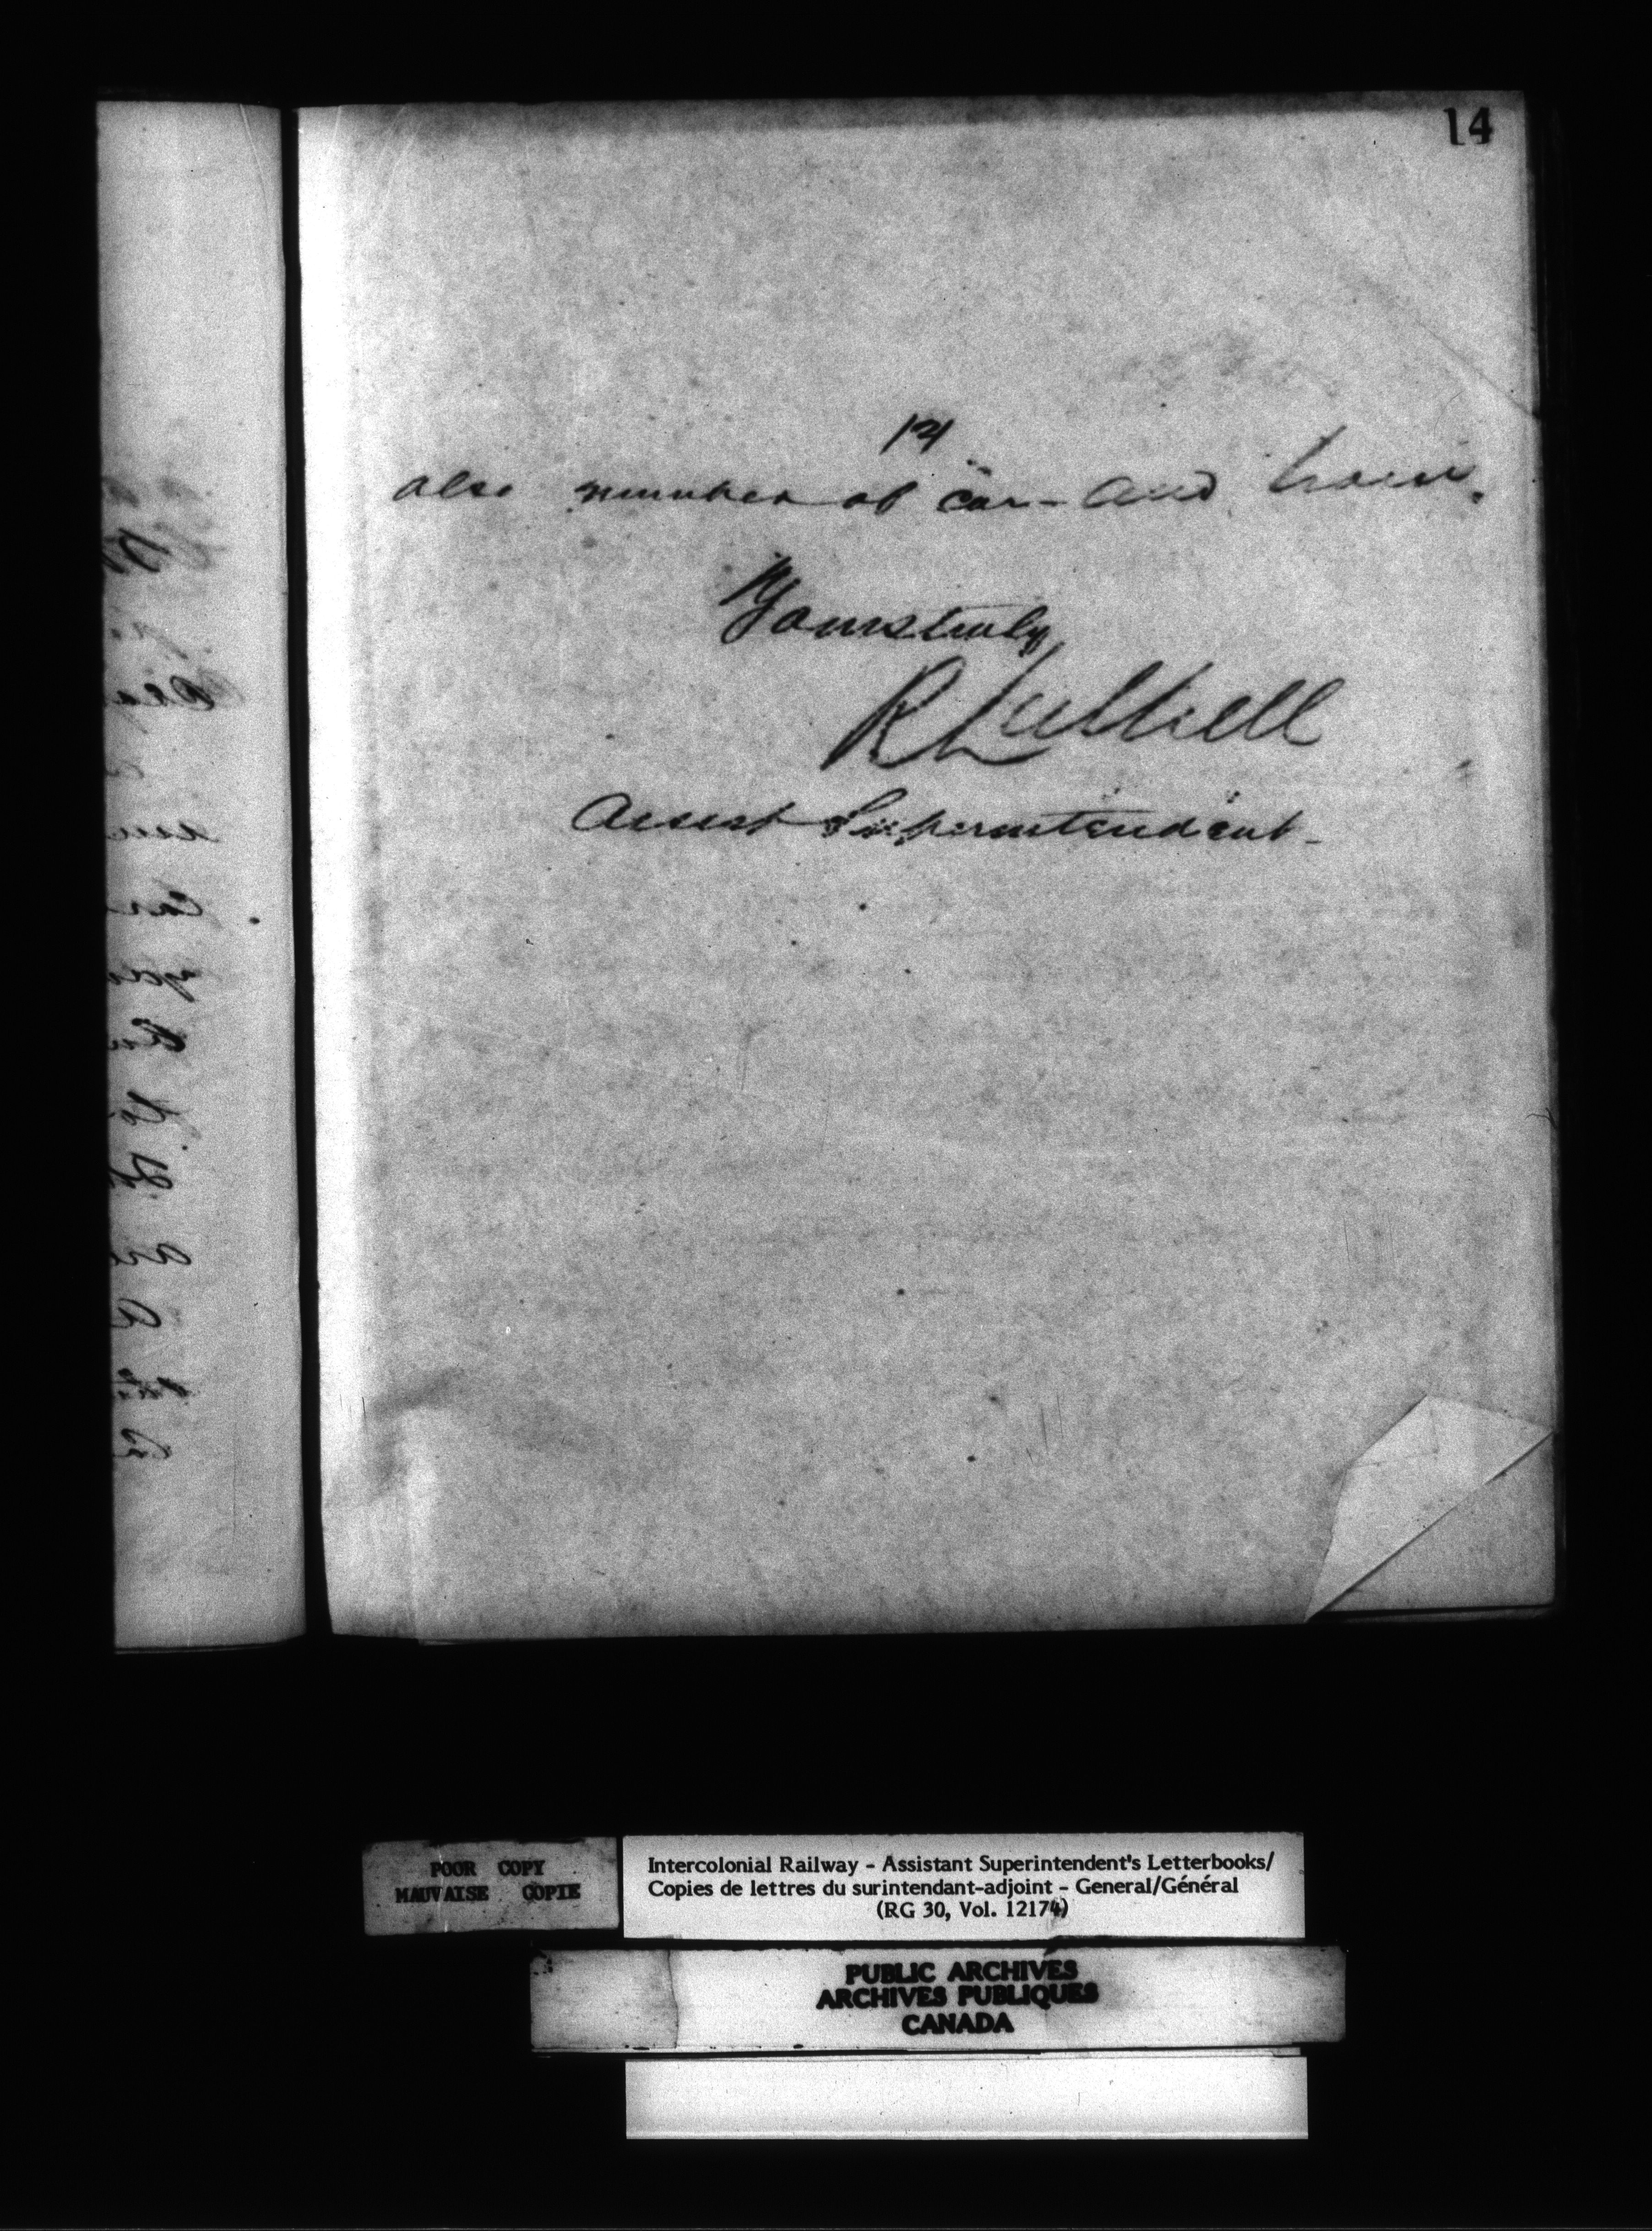 14
14
also number of car - and train.
Yours truly
R Luttrell
Assist Superintendent -
POOR COPY
MAUVAISE COPIE
Intercolonial Railway - Assistant Superintendent's Letterbooks/
Copies de lettres du surintendant-adjoint - General/Général
(RG 30, Vol. 12174)
PUBLIC ARCHIVES
ARCHIVES PUBLIQUES
CANADA